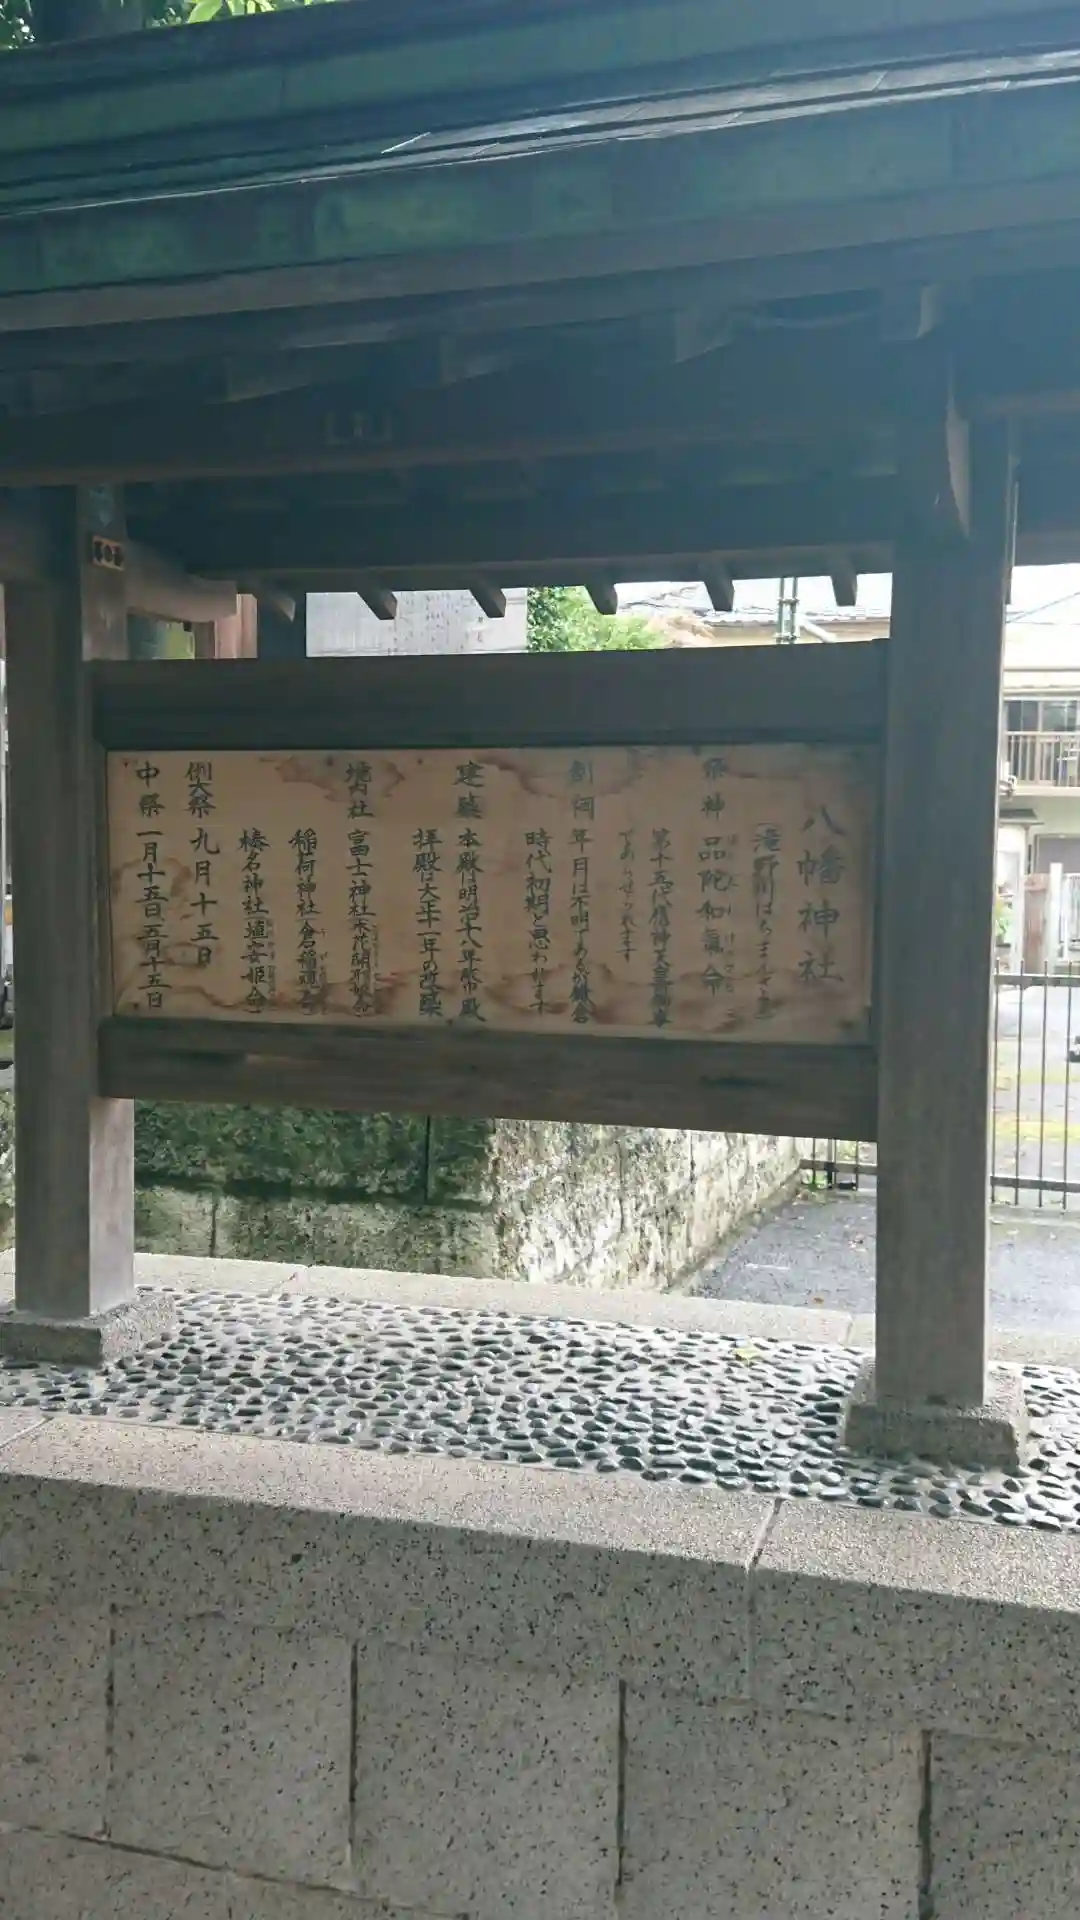 八幡神社
（滝野川はちまんさま）
祭神 品陀和氣命
第十五代應神天皇の御事
であらせられます
創祠 年月は不明であるが鎌倉
時代初期と思われます
建築 本殿は明治十八年
拝殿は大正十一年の改築
境内社 富士神社（木花開耶姫命）
稲荷神社（倉稲魂命）
榛名神社（埴安姫命）
例大祭 九月十五日
中祭 一月十五日、五月十五日